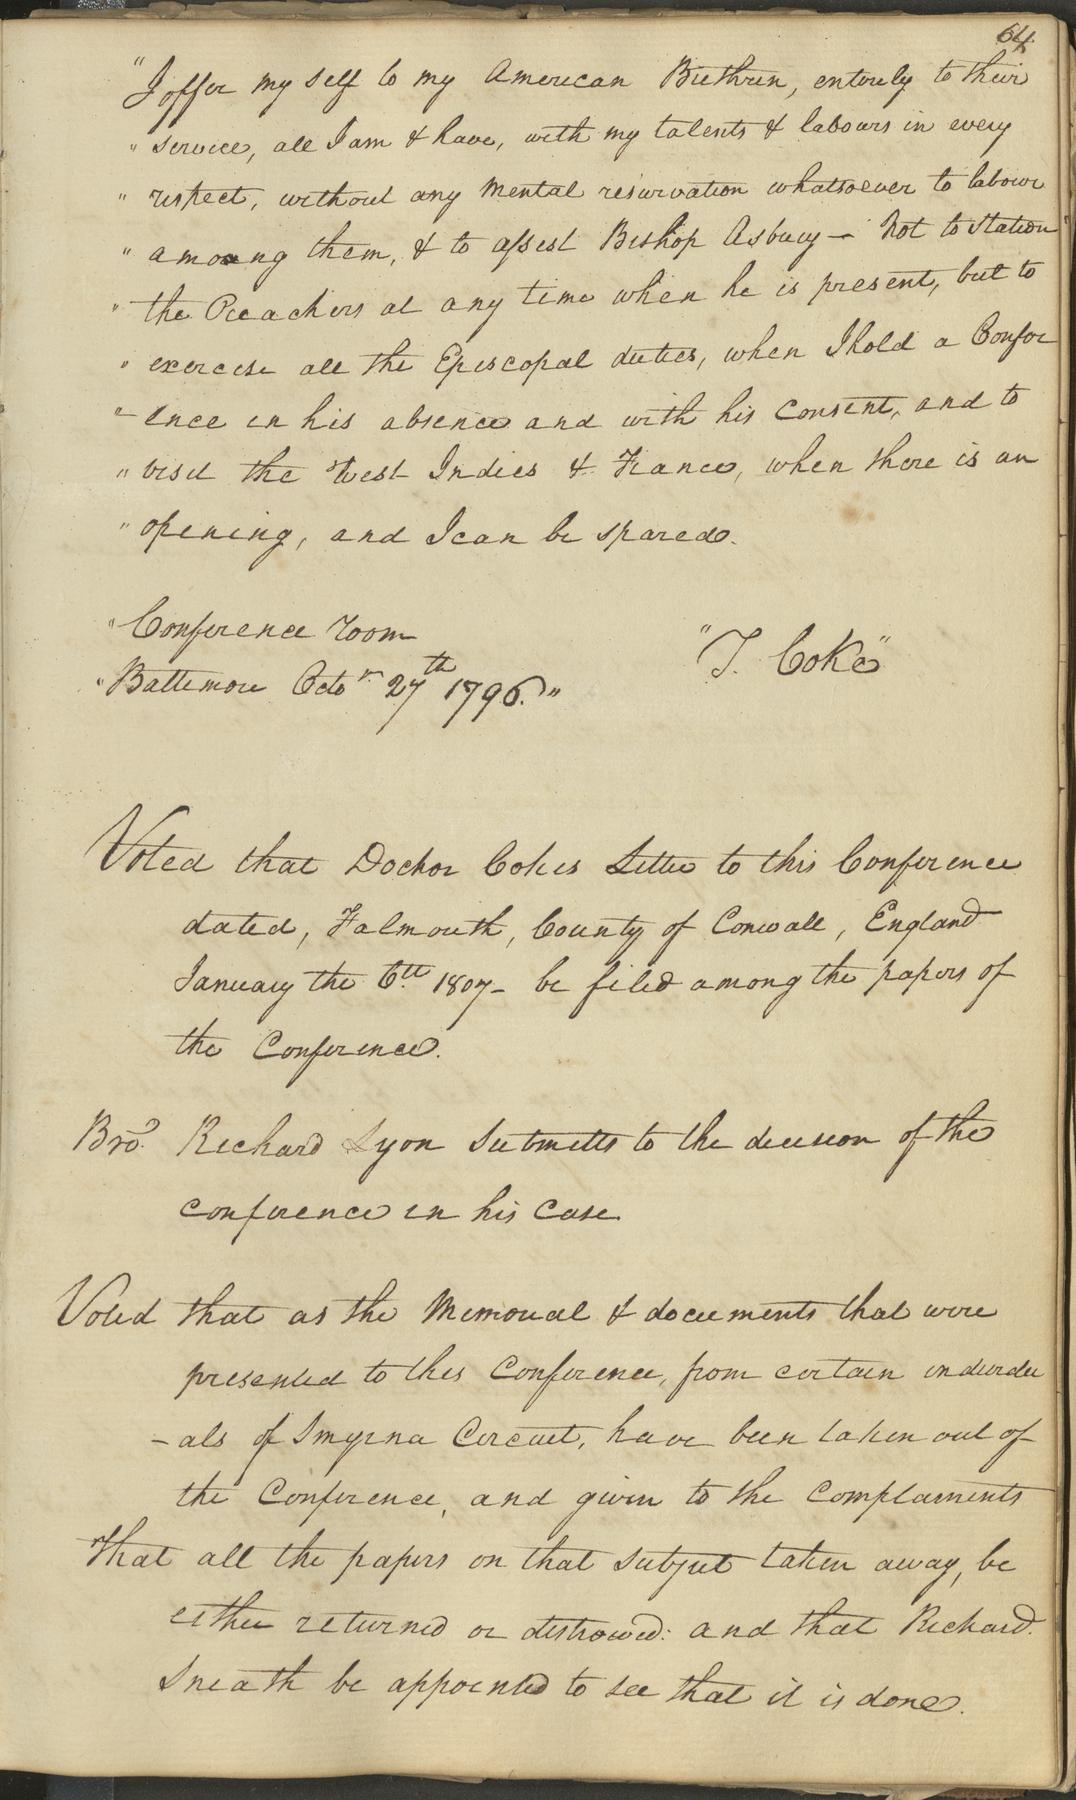 64
"I offer my self to my American Brethren, entirely to their
" service, all I am & have, with my talents & labours in every
" respect, without any mental reservation whatsoever to labour
" among them, & to assist Bishop Asbury — Not to station
" the Preachers at any time when he is present, but to
" exercise all the Episcopal duties, when I hold a Confer
"- ence in his absence and with his consent, and to
" visit the West Indies & France, when there is an
" opening, and I can be spared.
"Conference room
"T. Coke"
"Baltimore Octor 27th 1796."
Voted that Doctor Cokes Letter to this Conference
dated, Falmouth, County of Conwall, England
January the 6th 1807- be filed among the papers of
the Conference.
Bro. Richard Lyon submitts to the decision of the
conference in his case.
Voted that as the Memorial & documents that were
presented to this Conference, from certain individu
-als of Smyrna Circuit, have been taken out of
the Conference, and given to the complainents
That all the papers on that subject taken away, be
either returned or distrowed: and that Richard
Sneath be appointed to see that it is done.